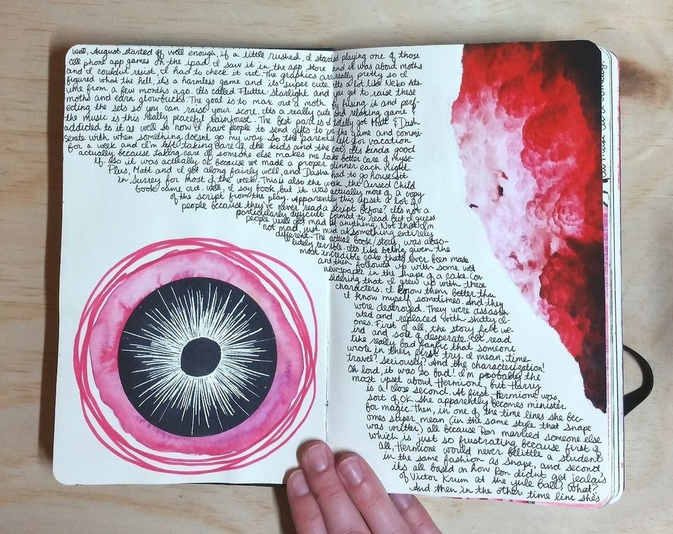 Well, August started off well enough, if a little rushed. I started playing one of those
cell phone app games on the ipad. I saw it in the app store and it was about moths
and I couldn't resist, I had to check it out. The graphics are really pretty so I
figured what the hell, it's a harmless game and its super cute. It's a lot like Neko Ats-
ume from a few months ago. Its called Flutter: Starlight and you get to raise these
moths and earn glowbucks. The goal is to max out a moth by filling it and perf-
ecting the sets so you can raise your score. It's a really cute and relaxing game &
the music is this really peaceful rainforest. The best part is I totally got Matt & Dasha
addicted to it as well so now I have people to send gifts to in the game and commi-
serate with when something doesnt go my way. So the parents left for vacation
for a week and I'm left taking care of the kids and the cats. It's kinda good
actually because taking care of someone else makes me take better care of myse-
lf. So it was actually ok because we made a proper dinner each night.
Plus, Matt and I get along fairly well, and Dasha had to go housesit
in Surrey for most of the week. This is also the week the Cursed Child
book came out. Well, I say book, but it was actually more of a copy
of the script from the play. Apparently this upset a lot of
people because they've never read a script before? It's not a
particularly difficult format to read but I guess
people will get mad at anything. Not that I'm
not mad, just mad at something entirely
different. The actual book/story was abso-
lutely terrible. It's like being given the
most incredible cake thats ever been made
and then followed up with some wet
newspaper in the shape of a cake. Con-
sidering that I grew up with these
characters, I know them better than
I know myself sometimes. And they
were destroyed. They were assassin
ated and replaced with shitty cl-
ones. First of all, the story felt we-
ird and sort of desperate. It read
like really bad fanfic that someone
wrote in their first try. I mean, time
travel? Seriously? And the characterization!
Oh lord, it was so bad! I'm probably the
most upset about Hermione, but Harry
is a close second. At first, Hermione was
sort of ok. She apparently becomes minister
for magic. Then, in one of the time lines she bec-
omes super mean (in the same style that Snape
was written) all because Ron married someone else
which is just so frustrating because first of
all, Hermione would never belittle a student
in the same fashion as Snape, and second,
its all based on how Ron didnt get jealous
of Victor Krum at the yule ball? What?
And then in the other time line she's